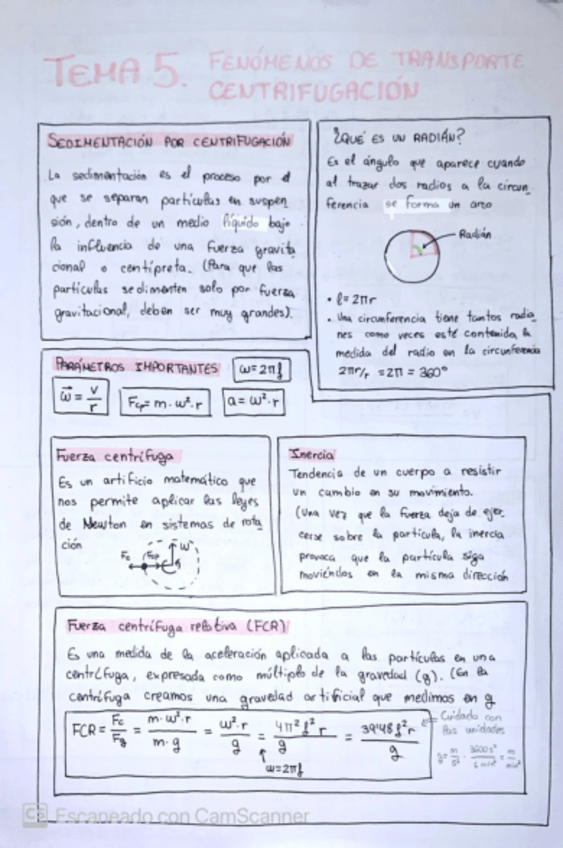 TEMA 5. FENÓMENOS DE TRANSPORTE
CENTRIFUGACIÓN
SEDIMENTACIÓN POR CENTRIFUGACIÓN
La sedimentación es el proceso por el
que se separan partículas en suspen
sión, dentro de un medio líquido bajo
la influencia de una fuerza gravita
cional o centípreta. (Para que las
partículas sedimenten solo por fuerza
gravitacional, deben ser muy grandes).
¿QUÉ ES UN RADIÁN?
Es el ángulo que aparece cuando
al trazar dos radios a la circun-
ferencia se forma un arco
Radián
• l = 2πr
• Una circunferencia tiene tantos radia
nes como veces esté contenida la
medida del radio en la circunferencia
2πr/r = 2π = 360°
PARÁMETROS IMPORTANTES ω=2πf
ω = v/r Fcp = m·ω²·r a = ω²·r
Fuerza centrífuga
Es un artificio matemático que
nos permite aplicar las leyes
de Newton en sistemas de rota
ción
Fc Fcp ω
Inercia
Tendencia de un cuerpo a resistir
un cambio en su movimiento.
(Una vez que la fuerza deja de ejer-
cerse sobre la partícula, la inercia
provoca que la partícula siga
moviéndose en la misma dirección
Fuerza centrífuga relativa (FCR)
Es una medida de la aceleración aplicada a las partículas en una
centrífuga, expresada como múltiplo de la gravedad (g). (En la
centrífuga creamos una gravedad artificial que medimos en g
FCR = Fc/Fg = m·ω²·r/m·g = ω²·r/g = 4π²f²r/g = 39'48f²r/g
ω=2πf
Cuidado con
las unidades
CS Escaneado con CamScanner